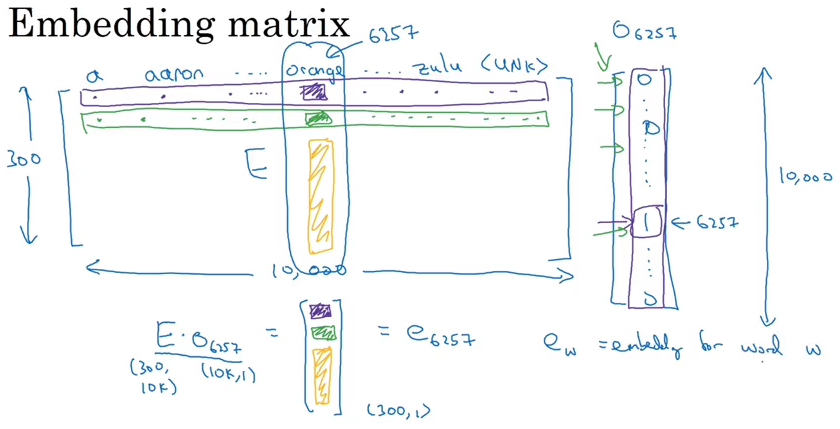 Embedding matrix
6257
O6257
a aaron ..... ... orange ..... zulu <UNK>
0
0
300
E
10,000
1 ← 6257
10,000
0
E · O6257 = [ ] = e6257
(300, 10K) (10K, 1)
(300, 1)
ew = embeddy for word w